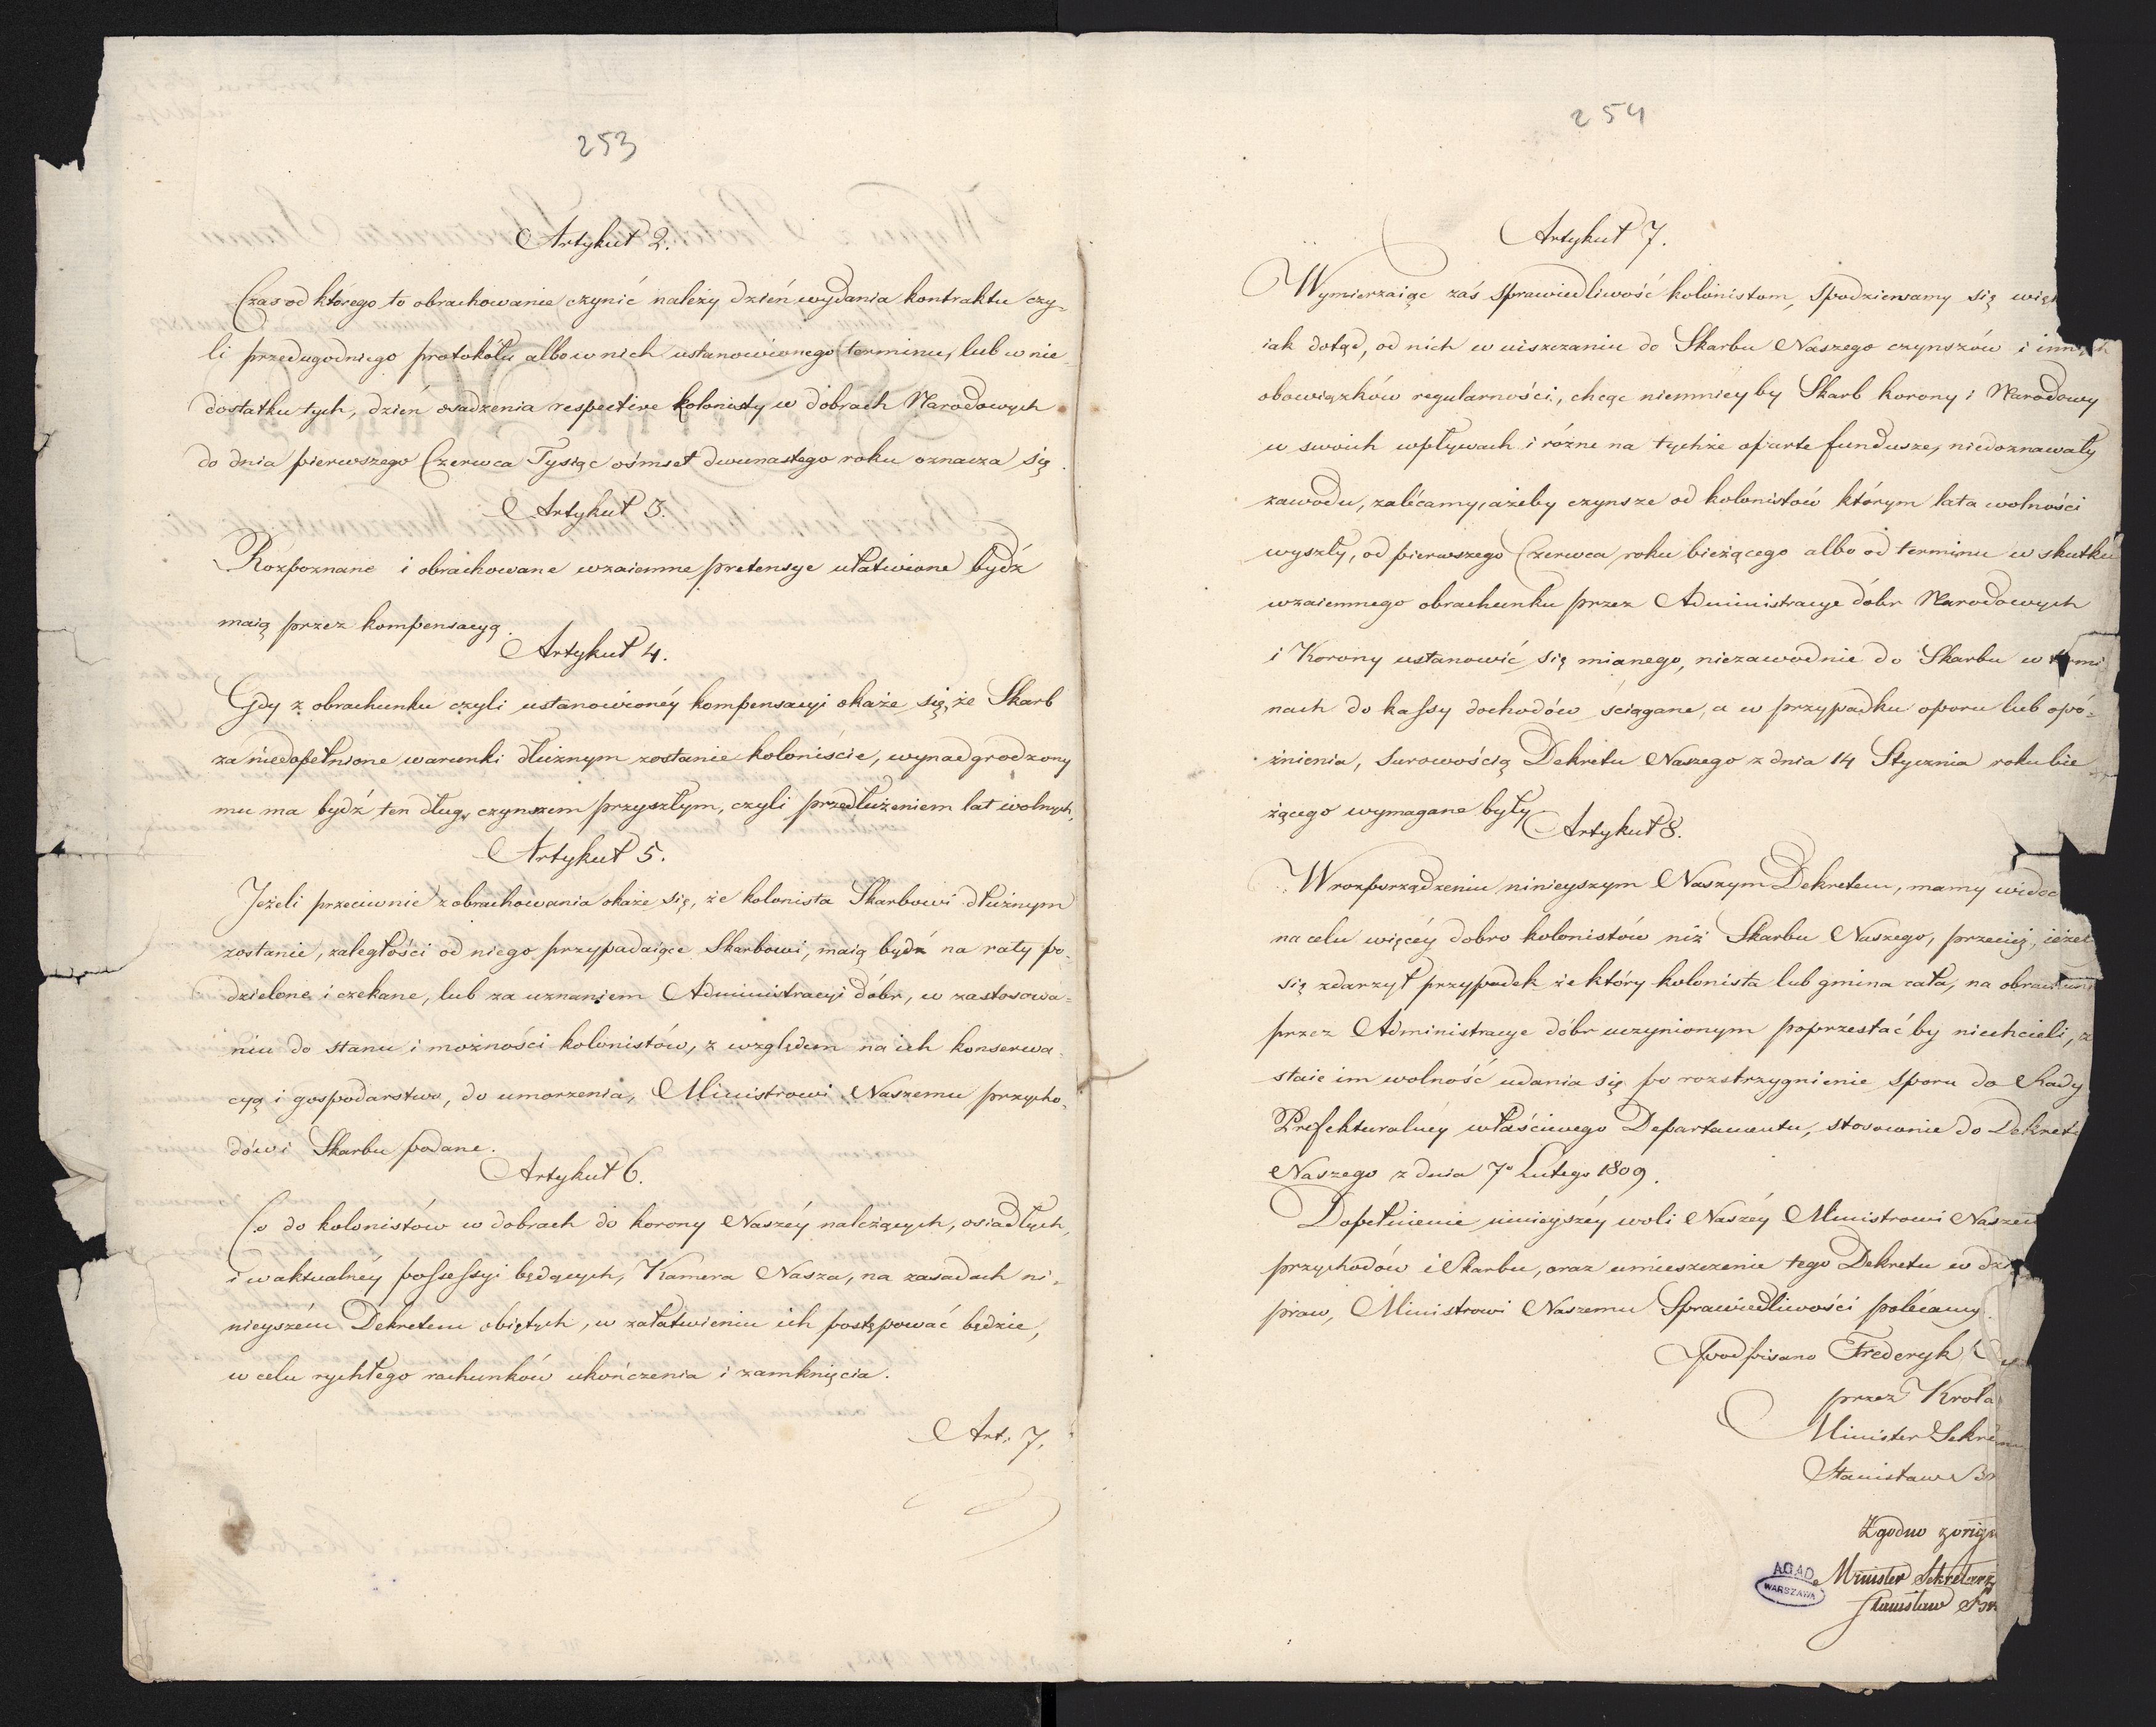 253
Artykuł 2.
Czas od którego to obrachowanie czynić należy, dzień wydania kontraktu czy-
li przedugodniego protokółu albo w nich ustanowionego terminu, lub w nie-
dostatku tych, dzień osadzenia respective kolonisty w dobrach Narodowych
do dnia pierwszego Czerwca Tysiąc ośmset dwunastego roku oznacza się.
Artykuł 3.
Rozpoznane i obrachowane wzaiemne pretensye ułatwione bydź
maią przez kompensacyą.
Artykuł 4.
Gdy z obrachunku czyli ustanowionéy kompensacyi okaże się, że Skarb
za niedopełnione warunki dłużnym zostanie koloniście, wynadgrodzony
mu ma bydź ten dług, czynszem przyszłym, czyli przedłużeniem lat wolnych.
Artykuł 5.
Jeżeli przeciwnie z obrachowania okaże się, że kolonista Skarbowi dłużnym
zostanie, zaległości od niego przypadaiące Skarbowi, maią bydź na raty po-
dzielone i czekane, lub za uznaniem Administracyi dóbr, w zastosowa-
niu do stanu i możności kolonistów, z względem na ich konserwa-
cyą i gospodarstwo, do umorzenia, Ministrowi Naszemu przycho-
dów i Skarbu podane.
Artykuł 6.
Co do kolonistów w dobrach do korony Naszéy należących, osiadłych,
i w aktualnéy possessyi będących, Kamera Nasza, na zasadach ni-
nieyszém Dekretem obiętych, w załatwieniu ich postępować będzie,
w celu rychłego rachunków ukończenia i zamknięcia.
Art: 7.
254
Artykuł 7.
Wymierzaiąc zaś sprawiedliwość kolonistom, spodziewamy się
iak dotąd, od nich w uiszczaniu do Skarbu Naszego czynszów i
obowiązków regularności, chcąc niemniéy by Skarb korony i Narodowy
w swoich wpływach i różne na tychże oparte fundusze, niedoznawały
zawodu, zalécamy, ażeby czynsze od kolonistów którym lata wolności
wyszły, od pierwszego Czerwca roku bieżącego albo od terminu w skutku
wzaiemnego obrachunku przez Administracye dóbr Narodowych
i Korony ustanowić się mianego, niezawodnie do Skarbu w termi
nach do kassy dochodów ściągane, a w przypadku oporu lub opó-
źnienia, surowością Dekretu Naszego z dnia 14 Stycznia roku bie
żącego wymagane były
Artykuł 8.
W rozporządzeniu ninieyszym Naszym Dekretem, mamy
na celu więcéy dobro kolonistów niż Skarbu Naszego, przecież,
się zdarzył przypadek że który kolonista lub gmina cała, na
przez Administracye dóbr uczynionym poprzestać by niechcieli,
staie im wolność udania się po rozstrzygnienie sporu do Rady
Prefekturalnéy właściwego Departamentu, stosownie do
Naszego z dnia 7º Lutego 1809.
Dopełnienie ninieyszéy woli Naszéy Ministrowi
przychodów i Skarbu, oraz umieszczenie tego Dekretu w
praw, Ministrowi Naszemu Sprawiedliwości polécamy.
podpisano Frederyk
przez Króla
Minister
Stanisław
Zgodno
Minister Sekretarz
Stanisław
AGAD
WARSZAWA